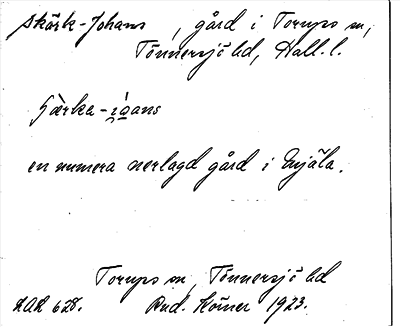 Skörk-Johans, gård i Torups sn,
Tönnersjö hd, Hall. l.
en numera nerlagd gård i Mjäla.
Torups sn, Tönnersjö hd
Rud. Körner 1923.